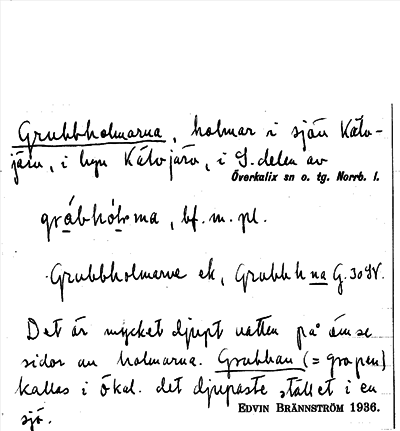 Grubbholmarna, holmar i sjön Kåto-
järv, i byn Kåtojärv, i S. delen av
Överkalix sn o. tg. Norrb. l.
gråbhólma, bf. m. pl.
Grubbholmarne ek, Grubbh na G. 30 SV.
Det är mycket djupt vatten på ömse
sidor av holmarna. Grubban (= gropen)
kallas i Ökal. det djupaste stället i en
sjö.
EDVIN BRÄNNSTRÖM 1936.